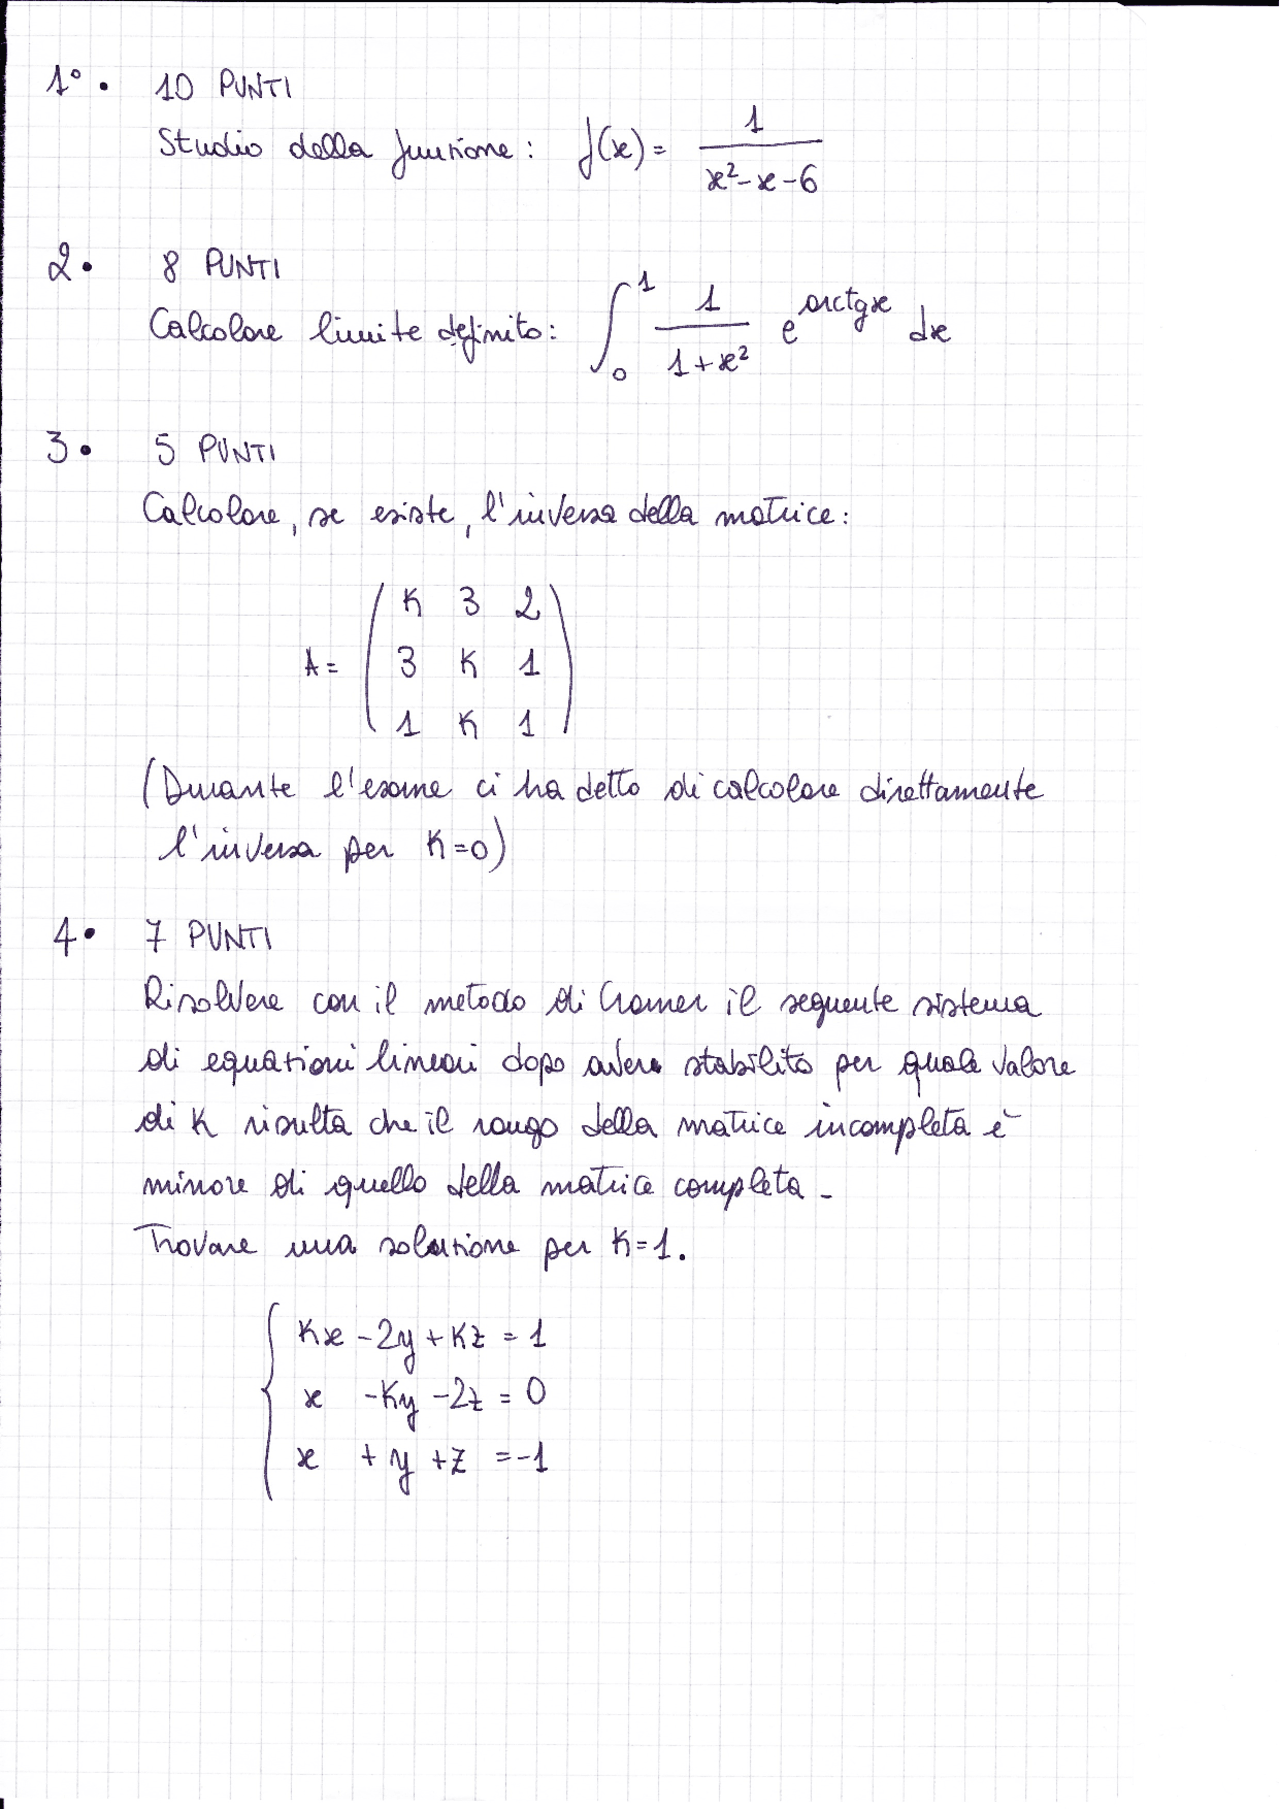 1° • 10 PUNTI
Studio della funzione: f(x) = 1 / (x² - x - 6)
2 • 8 PUNTI
Calcolare limite definito: ∫₀¹ 1/(1+x²) e^(arctgx) dx
3 • 5 PUNTI
Calcolare, se esiste, l'inversa della matrice:
K 3 2
A = 3 K 1
1 K 1
(Durante l'esame ci ha detto di calcolare direttamente
l'inversa per K=0)
4 • 7 PUNTI
Risolvere con il metodo di Cramer il seguente sistema
di equazioni lineari dopo avere stabilito per quale valore
di K risulta che il rango della matrice incompleta è
minore di quello della matrice completa -
Trovare una soluzione per K=1.
Kx - 2y + Kz = 1
x - Ky - 2z = 0
x + y + z = -1